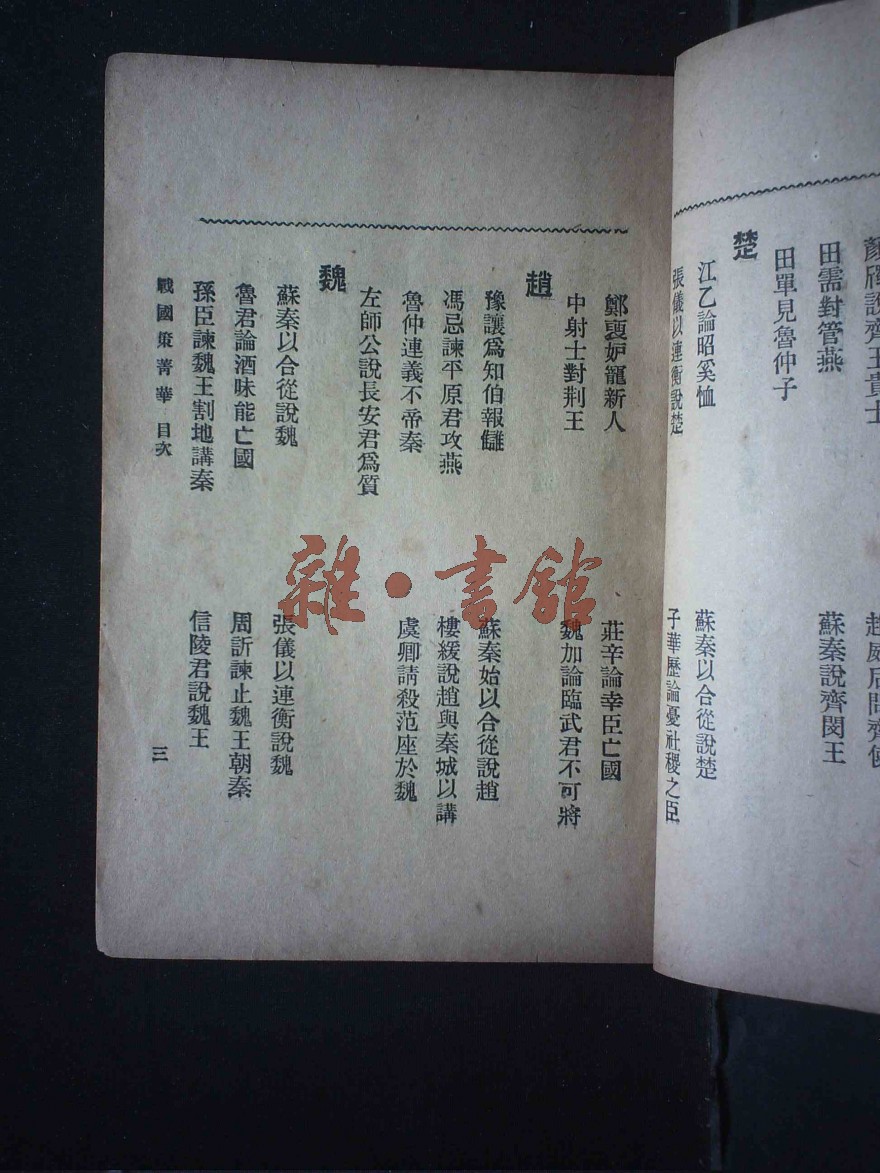 顏斶說齊王貴士
田需對管燕
蘇秦說齊閔王
田單見魯仲子
楚
江乙論昭奚恤
蘇秦以合從說楚
張儀以連衡說楚
子華歷論憂社稷之臣
鄭褏妒寵新人
莊辛論幸臣亡國
中射士對荆王
魏加論臨武君不可將
趙
豫讓爲知伯報讎
蘇秦始以合從說趙
馮忌諫平原君攻燕
樓緩說趙與秦城以講
魯仲連義不帝秦
虞卿請殺范座於魏
左師公說長安君爲質
魏
蘇秦以合從說魏
張儀以連衡說魏
魯君論酒味能亡國
周訢諫止魏王朝秦
孫臣諫魏王割地講秦
信陵君說魏王
戰國策菁華 目次
三
雜·書館